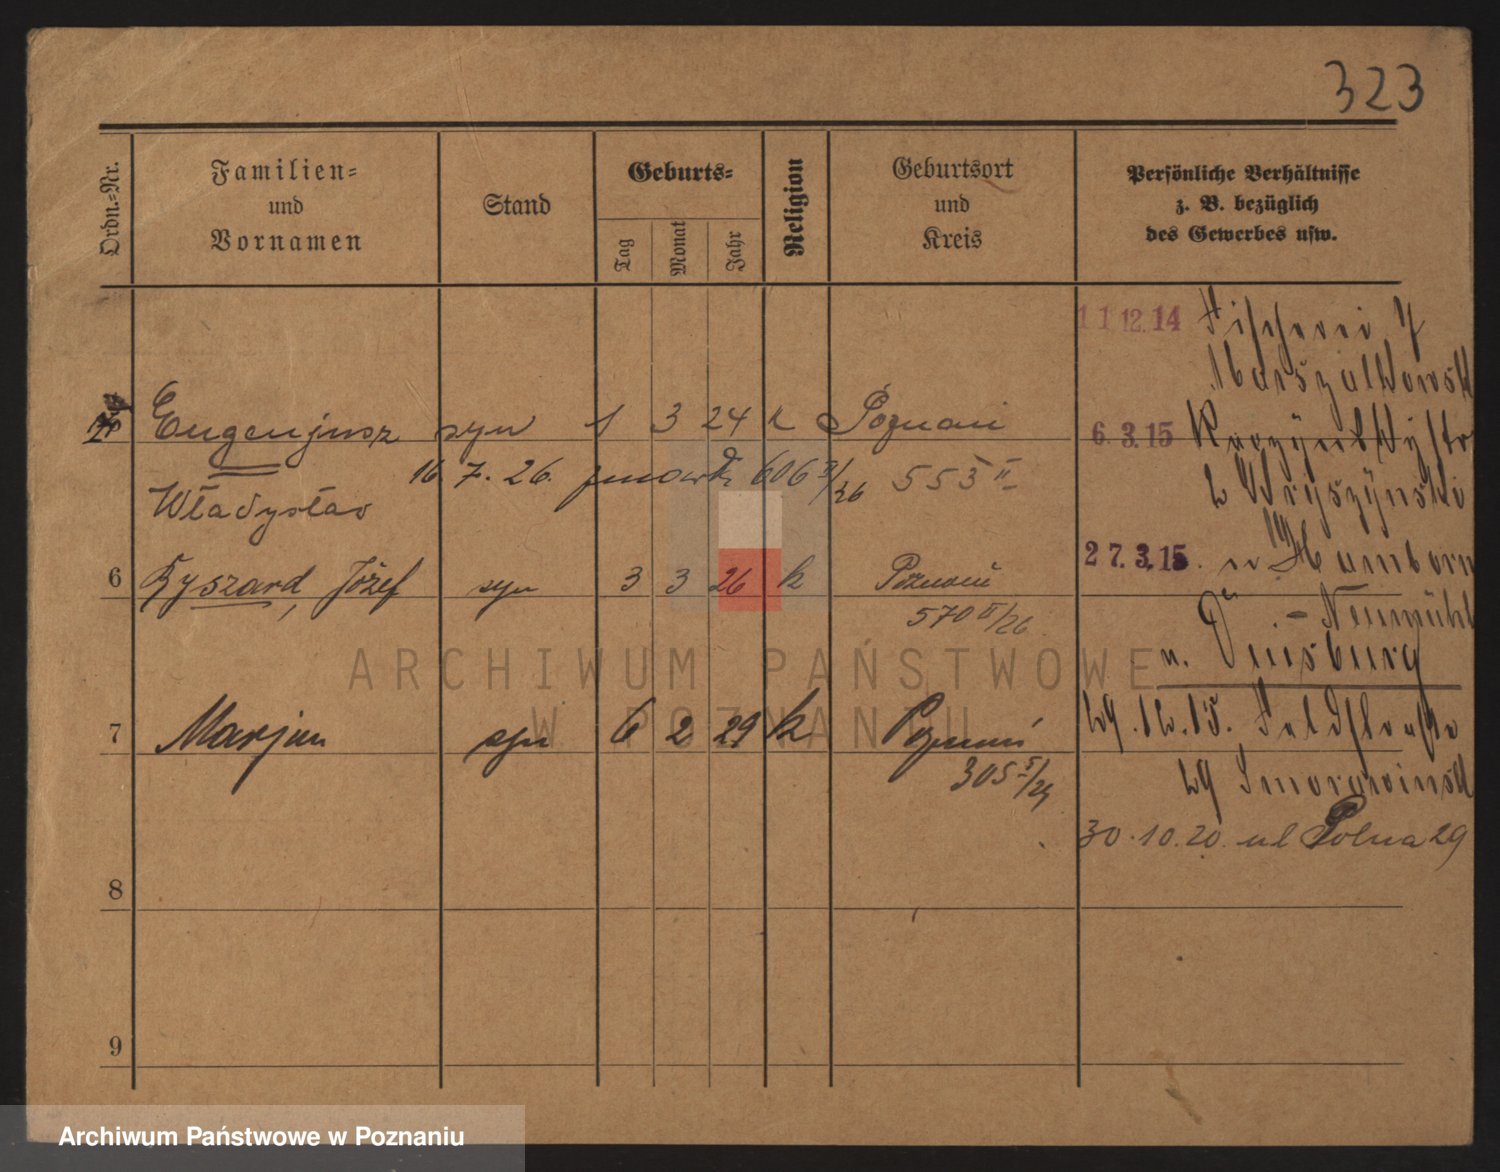 323
Ordn.-Nr.
Familien-
und
Vornamen
Stand
Geburts-
Tag
Monat
Jahr
Religion
Geburtsort
und
Kreis
Persönliche Verhältnisse
z. B. bezüglich
des Gewerbes usw.
11 12.14 Fischerei 7
Marszalkowsk
Eugenjusz syn 1 3 24 k Poznań
6.3.15
16.7.26. 606 553 II
Władysław
27.3.15 n Hamborn
6 Ryszard, Józef syn 3 3 26 k Poznań
- Neumühl
570 II/26
n. Duisburg
7 Marjan syn 6 2 29 k Poznań
29.12.15. Feldstraße
305 5/29
29
30.10.20. ul Polna 29
8
9
ARCHIWUM PAŃSTWOWE
W POZNANIU
Archiwum Państwowe w Poznaniu